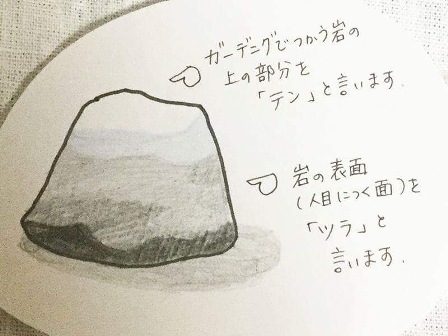 ガーデニングでつかう岩の
上の部分を
「テン」と言います.
岩の表面
(人目につく面)を
「ツラ」と
言います.